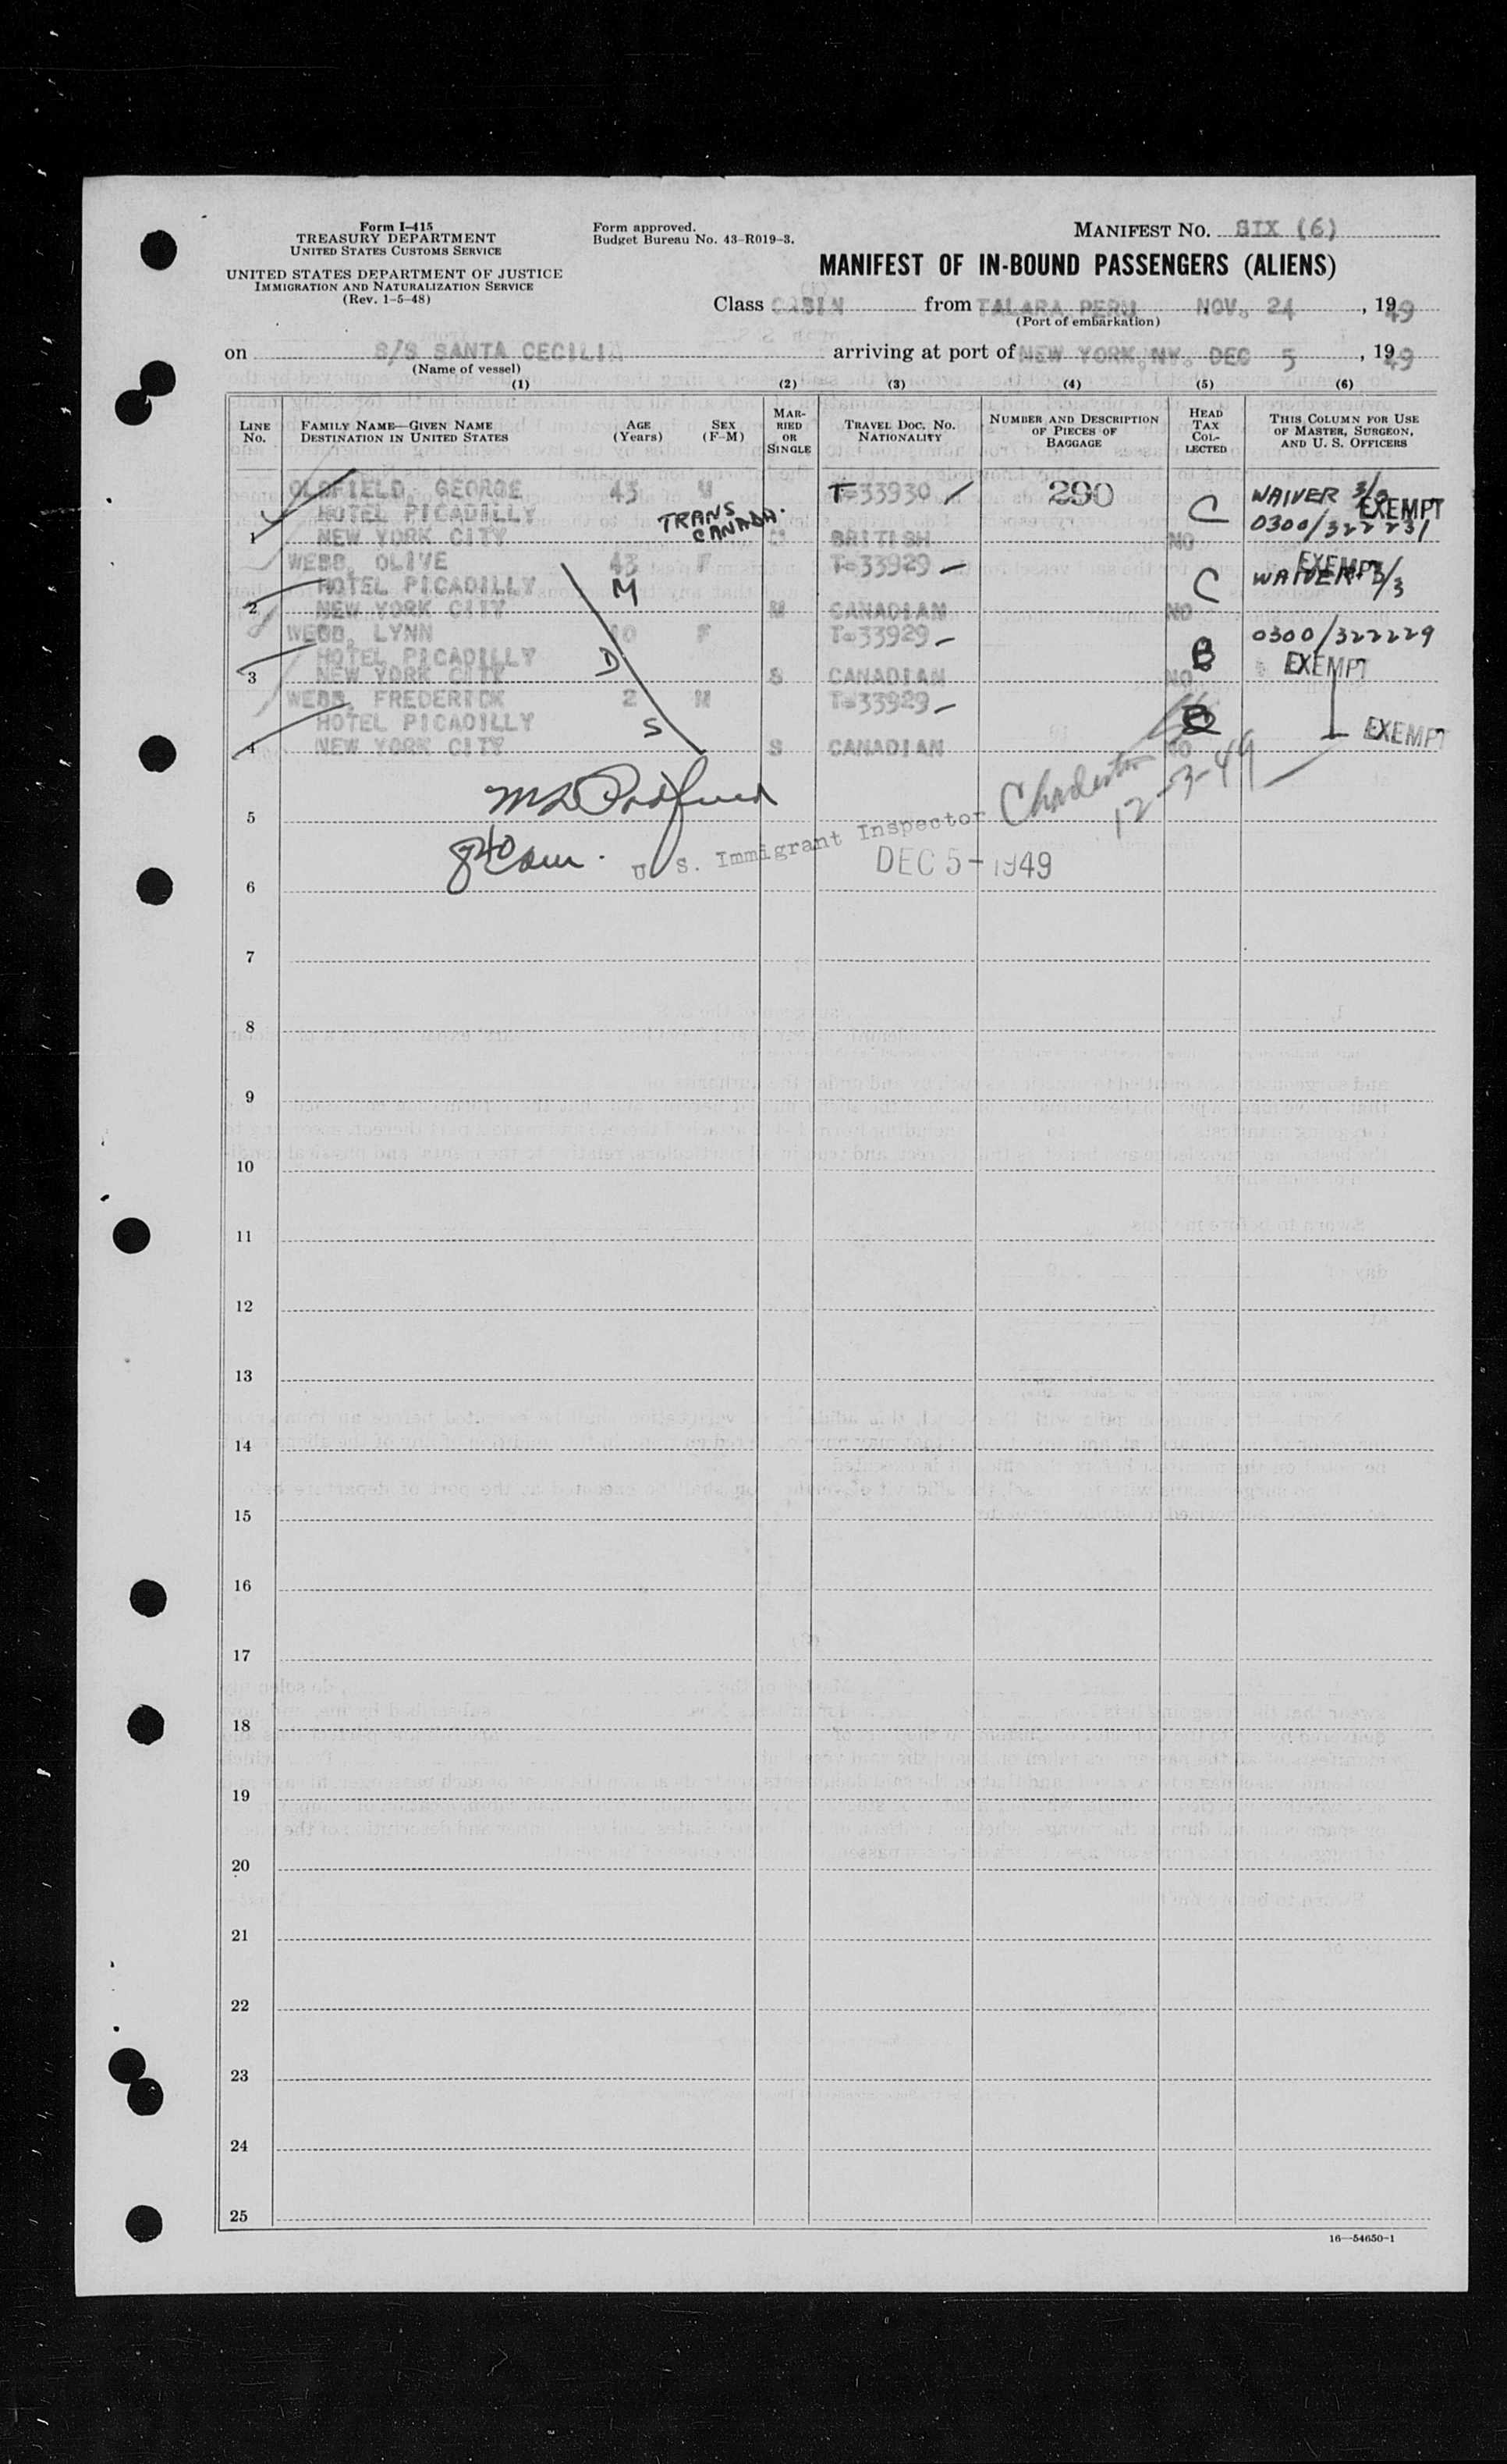 Form I-415
TREASURY DEPARTMENT
UNITED STATES CUSTOMS SERVICE
UNITED STATES DEPARTMENT OF JUSTICE
IMMIGRATION AND NATURALIZATION SERVICE
(Rev. 1-5-48)
Form approved.
Budget Bureau No. 43-R019-3.
MANIFEST NO. SIX (6)
MANIFEST OF IN-BOUND PASSENGERS (ALIENS)
Class CABIN from TALARA PERU NOV. 24, 1949
(Port of embarkation)
on S/S SANTA CECILIA arriving at port of NEW YORK, NY. DEC 5, 1949
(Name of vessel)
(1) (2) (3) (4) (5) (6)
LINE NO. FAMILY NAME—GIVEN NAME DESTINATION IN UNITED STATES AGE (Years) SEX (F-M) MARRIED OR SINGLE TRAVEL DOC. NO. NATIONALITY NUMBER AND DESCRIPTION OF PIECES OF BAGGAGE HEAD TAX COLLECTED THIS COLUMN FOR USE OF MASTER, SURGEON, AND U. S. OFFICERS
OLDFIELD, GEORGE 43 M T-33930 290 C WAIVER 3/3 EXEMPT
HOTEL PICADILLY TRANS CANADA. 0300/322231
1 NEW YORK CITY M BRITISH NO
WEBB, OLIVE 43 F T-33929 EXEMPT
HOTEL PICADILLY M C WAIVER 3/3
2 NEW YORK CITY M CANADIAN NO
WEBB, LYNN 10 F T-33929 0300/322229
HOTEL PICADILLY D B EXEMPT
3 NEW YORK CITY S CANADIAN NO
WEBB, FREDERICK 2 M T-33929
HOTEL PICADILLY S B EXEMPT
4 NEW YORK CITY S CANADIAN NO
Charleston
12-3-49
5
840 am. U. S. Immigrant Inspector
DEC 5-1949
6
7
8
9
10
11
12
13
14
15
16
17
18
19
20
21
22
23
24
25
16—54650-1